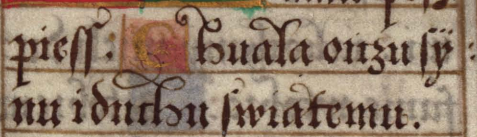 pieſſ: Chuala onzu ſÿ:
nu i duchu ſwiatemu.